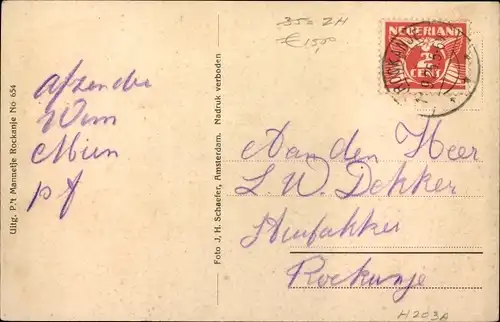 350 ZH
€ 15,00
NEDERLAND
2
CENT
Uitg. P. 't Mannetje Rockanje No 654
Foto J. H. Schaefer, Amsterdam. Nadruk verboden
Afzender
Wim
Mien
Aan den Heer
L. W. Dekker
Rockanje
H203A